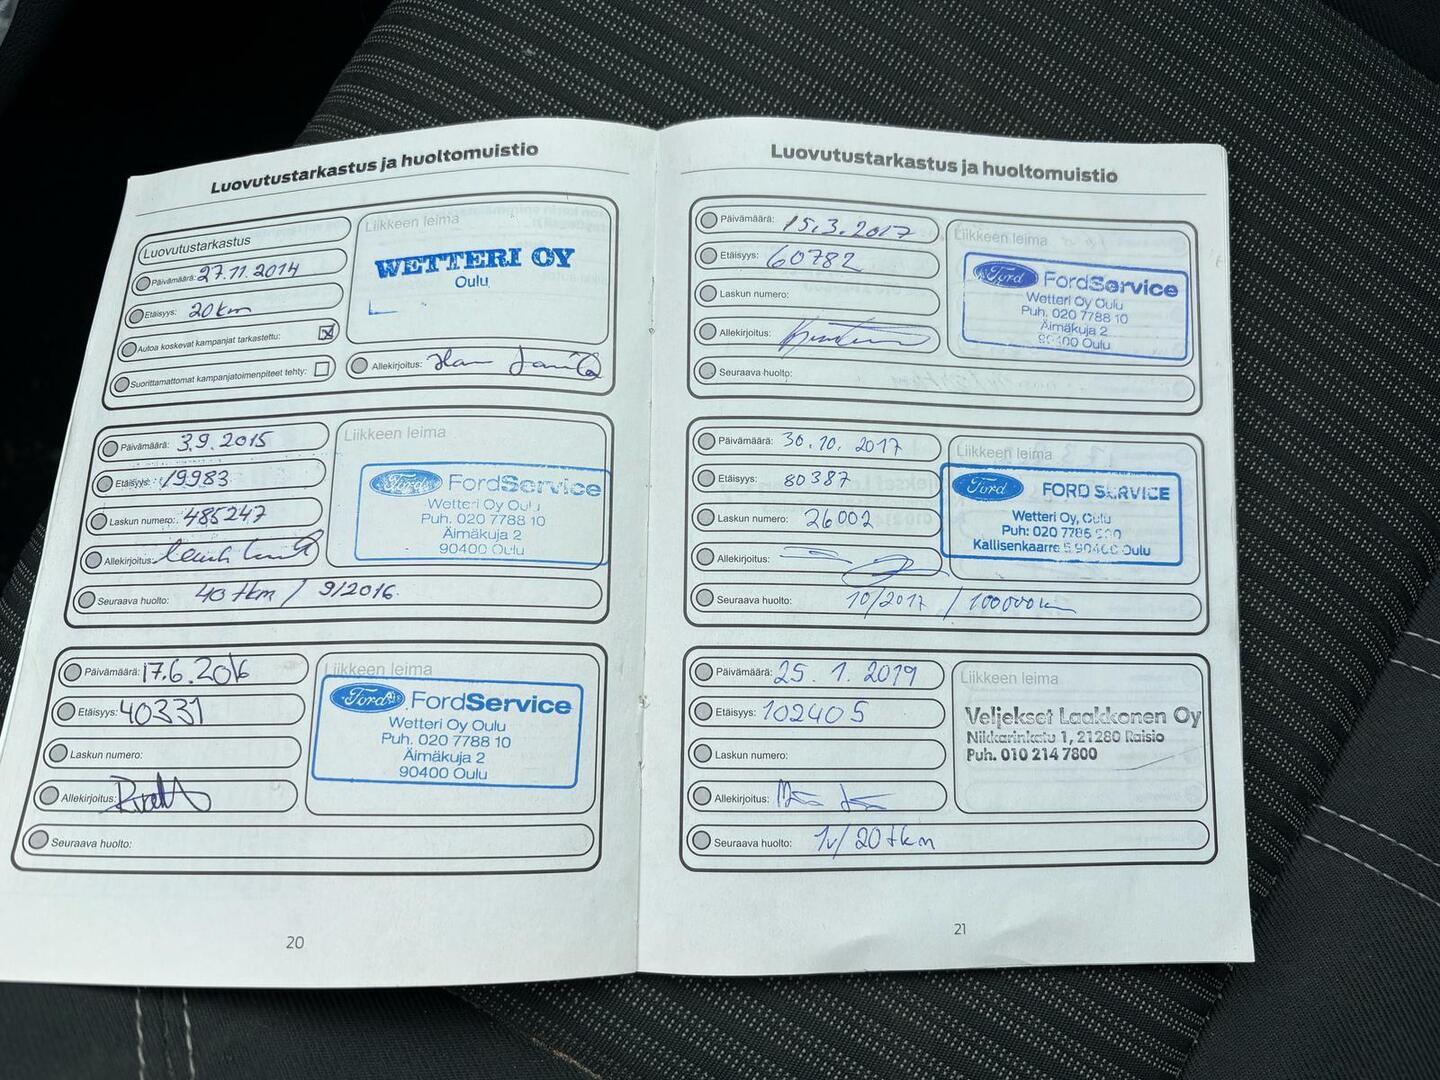 Luovutustarkastus ja huoltomuistio
Luovutustarkastus
Päivämäärä: 27.11.2014
Etäisyys: 20km
Autoa koskevat kampanjat tarkastettu: X
Suorittamattomat kampanjatoimenpiteet tehty:
Liikkeen leima
WETTERI OY
Oulu
Allekirjoitus:
Päivämäärä: 3.9.2015
Etäisyys: 19983
Laskun numero: 485247
Allekirjoitus:
Seuraava huolto: 40 tkm / 9/2016
Liikkeen leima
Ford FordService
Wetteri Oy Oulu
Puh. 020 7788 10
Äimäkuja 2
90400 Oulu
Päivämäärä: 17.6.2016
Etäisyys: 40331
Laskun numero:
Allekirjoitus:
Seuraava huolto:
Liikkeen leima
Ford FordService
Wetteri Oy Oulu
Puh. 020 7788 10
Äimäkuja 2
90400 Oulu
20
Luovutustarkastus ja huoltomuistio
Päivämäärä: 15.3.2017
Etäisyys: 60782
Laskun numero:
Allekirjoitus:
Seuraava huolto:
Liikkeen leima
Ford FordService
Wetteri Oy Oulu
Puh. 020 7788 10
Äimäkuja 2
90400 Oulu
Päivämäärä: 30.10.2017
Etäisyys: 80387
Laskun numero: 26002
Allekirjoitus:
Seuraava huolto: 10/2017 / 100000km
Liikkeen leima
Ford FORD SERVICE
Wetteri Oy, Oulu
Puh: 020 7785
Kallisenkaarre 5 90400 Oulu
Päivämäärä: 25.1.2019
Etäisyys: 102405
Laskun numero:
Allekirjoitus:
Seuraava huolto: 1v/20tkm
Liikkeen leima
Veljekset Laakkonen Oy
Nikkarinkatu 1, 21280 Raisio
Puh. 010 214 7800
21